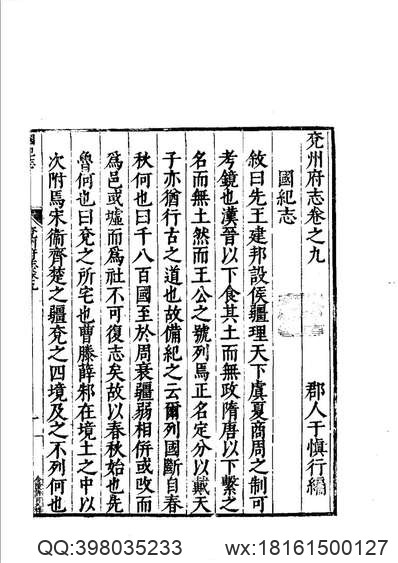 兗州府志卷之九
郡人于慎行編
國紀志
敘曰先王建邦設侯疆理天下虞夏商周之制可
考鏡也漢晉以下食其土而無政隋唐以下繫之
名而無土然而王公之號列焉正名定分以戴天
子亦猶行古之道也故備紀之云爾列國斷自春
秋何也曰千八百國至於周衰疆弱相併或改而
為邑或墟而為社不可復志矣故以春秋始也先
魯何也曰兗之所宅也曹滕薛邾在境土之中以
次附焉宋衞齊楚之疆兗之四境及之不列何也
QQ:398035233
wx:18161500127